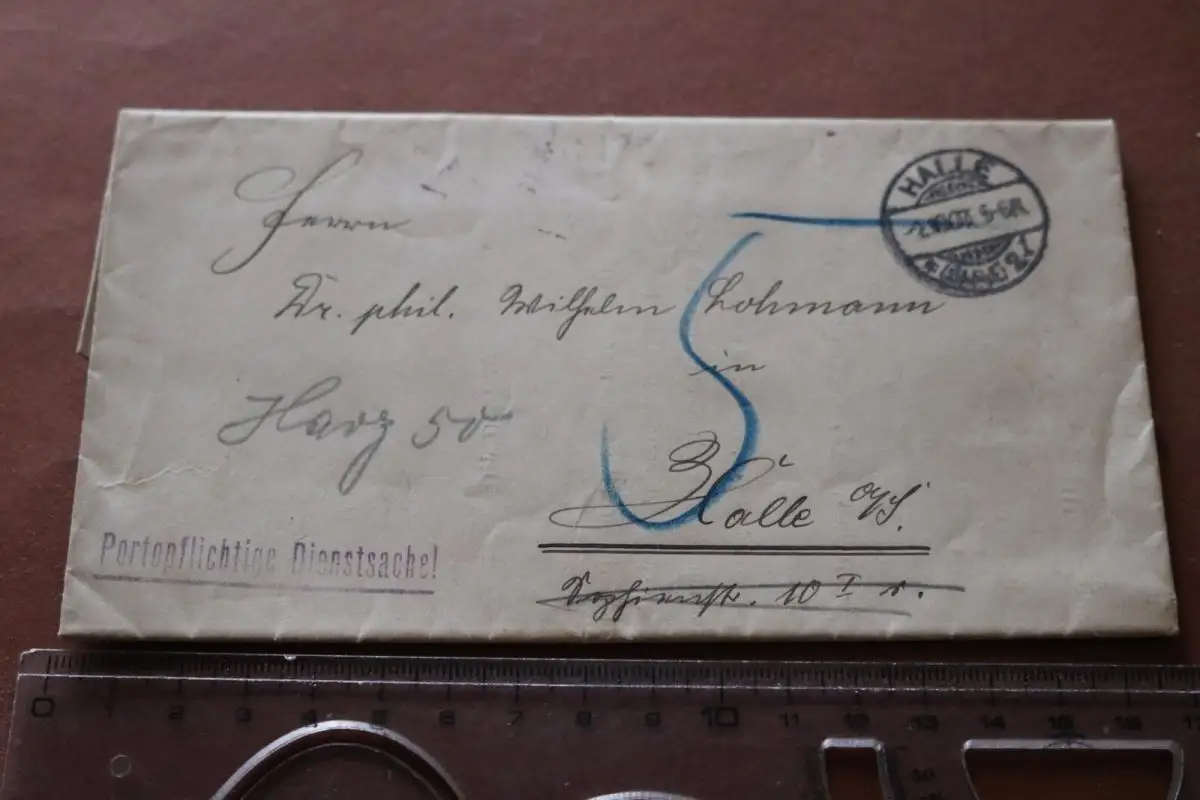 HALLE
5-6N.
* (SAALE) 2
Herrn
Dr. phil. Wilhelm Lohmann
in
Harz 50
5
Halle a/S.
Portopflichtige Dienstsache!
10 I r.
0 1 2 3 4 5 6 7 8 9 10 11 12 13 14 15 16